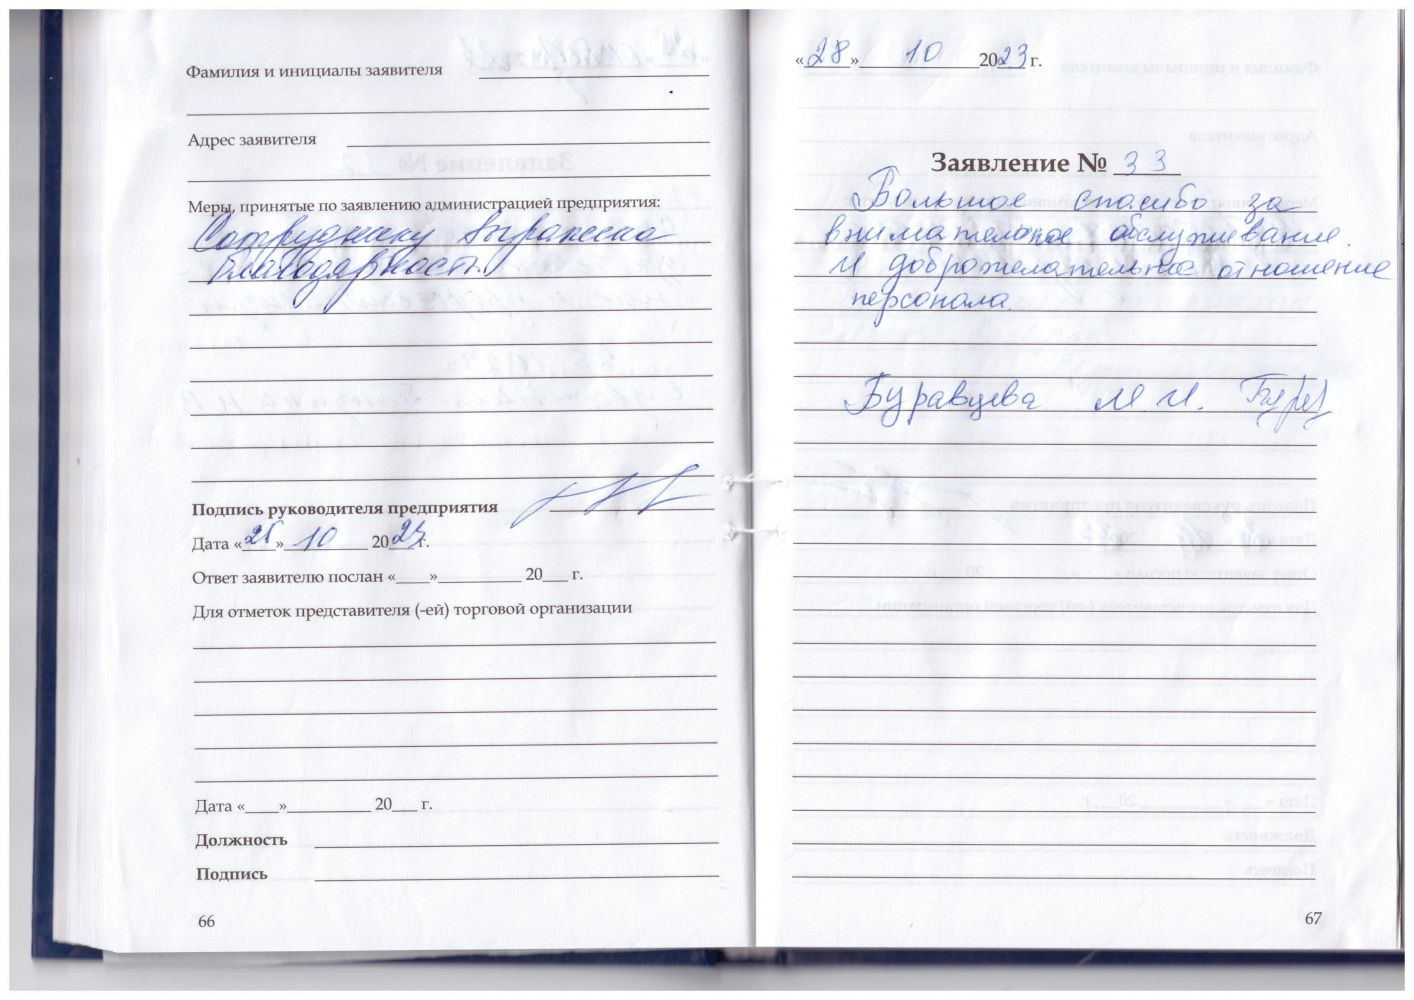 Фамилия и инициалы заявителя
Адрес заявителя
Меры, принятые по заявлению администрацией предприятия:
Сотруднику выражена
благодарность.
Подпись руководителя предприятия
Дата «    » 10 20    г.
Ответ заявителю послан «    » 20    г.
Для отметок представителя (-ей) торговой организации
Дата «    » 20    г.
Должность
Подпись
66
«28» 10 2023 г.
Заявление № 33
Большое спасибо за
внимательное обслуживание.
И доброжелательное отношение
персонала.
Буравцева М. И.
67